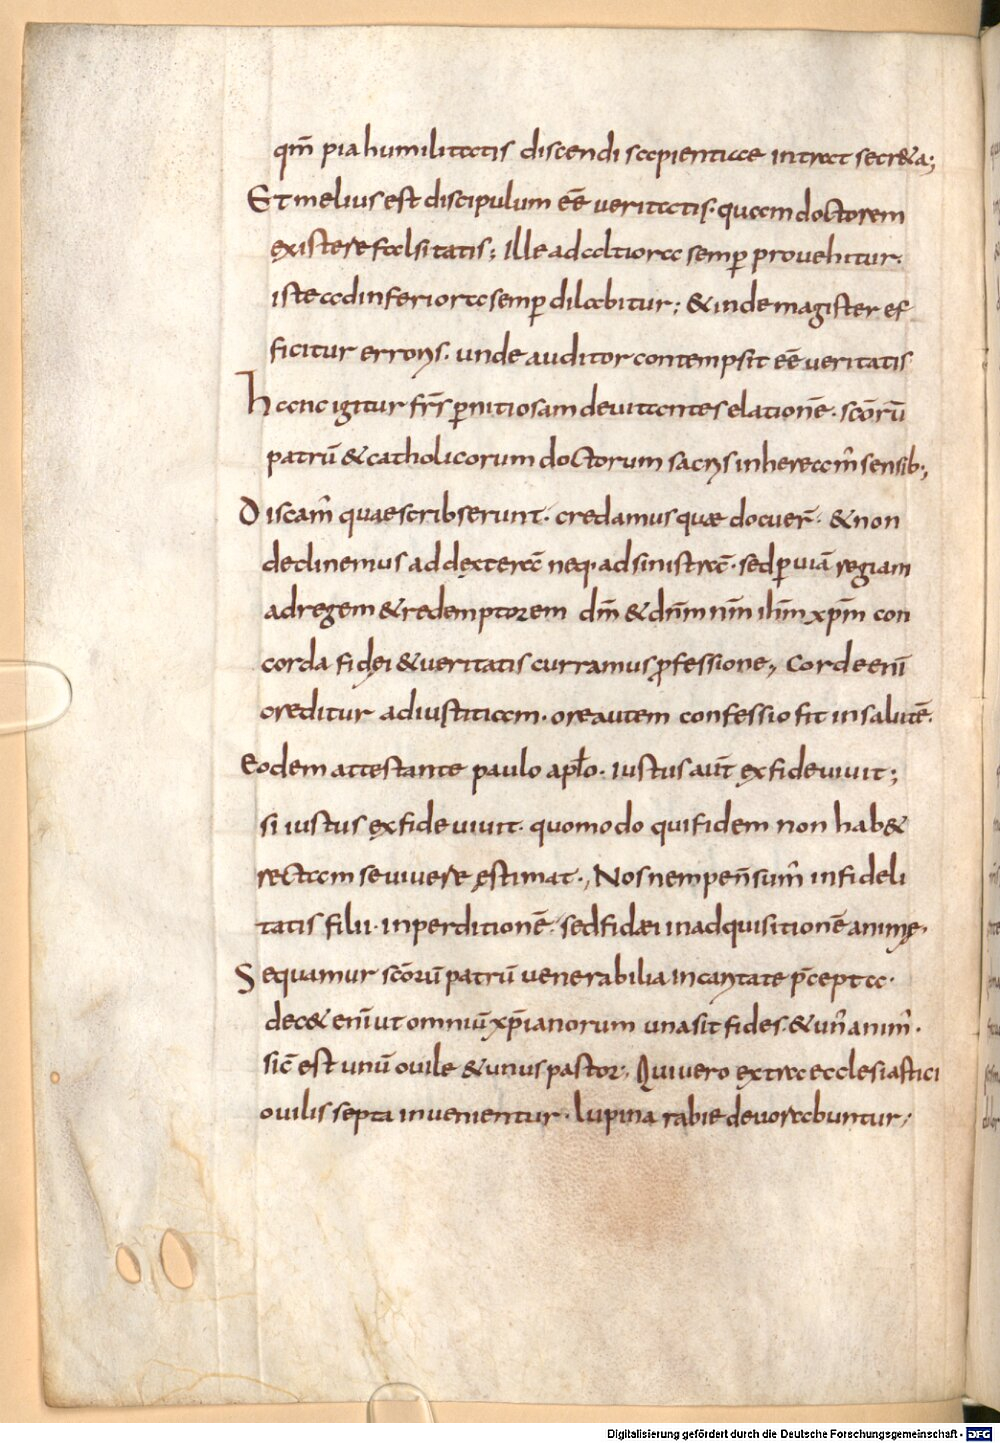 qm̄ pia humilitatis discendi sapientiae intrat secr&a;
Et melius est discipulum eē veritatis· quam doctorem
existere falsitatis; Ille ad altiora semꝑ provehitur·
iste ad inferiora semꝑ dilabitur; & inde magister ef
ficitur erroris· unde auditor contempsit eē veritatis
hanc igitur frs̄ ꝑnitiosam devitantes elationē· scōrū
patrū & catholicorum doctorum sacris inhereamꝰ sensib;,
Discamꝰ quae scribserunt· credamus quæ docuer̄· & non
declinemus ad dexterā neq· ad sinistrā· sed ꝑ viā regiam
ad regem & redemptorem dm̄ & dn̄m nr̄m ih̄m xp̄m con
corda fidei & veritatis curramus ꝓfessione, Corde enī
creditur ad iustitiam· ore autem confessio fit in salutē·
Eodem attestante paulo aplo· iustus aut̄ ex fide vivit;
si iustus ex fide vivit· quomodo qui fidem non hab&
rectam se vivere ęstimat·, Nos nempe n̄ sumꝰ infideli
tatis filii· in perditionē· sed fidæi in adquisitionē animę·
Sequamur scōrū patrū venerabilia in caritate p̄cepta·
dec& enī ut omniū xp̄ianorum una sit fides· & unꝰ animꝰ·
sic̄ est unū ovile & unus pastor·, Qui vero extra ecclesiastici
ovilis septa invenientur· lupina rabie devorabuntur,
Digitalisierung gefördert durch die Deutsche Forschungsgemeinschaft - DFG